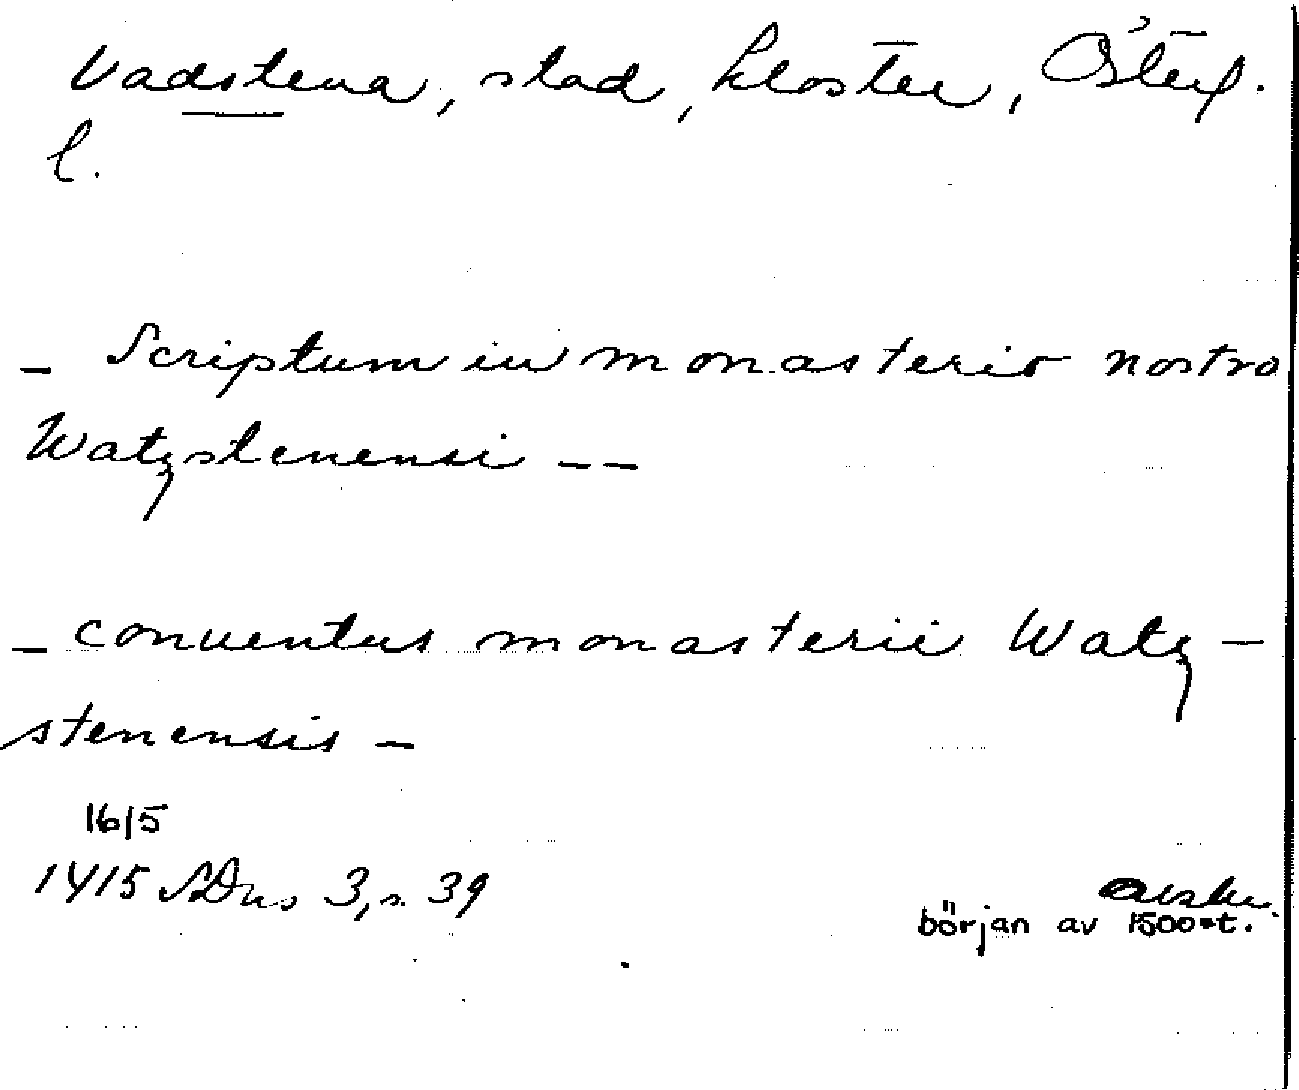 Vadstena, stad, kloster, Österg.
l.
- Scriptum in monasterio nostro
Watzstenensi --
- conuentus monasterii Watz-
stenensis -
16/5
1415 SDns 3, s. 39
avskr.
början av 1500-t.